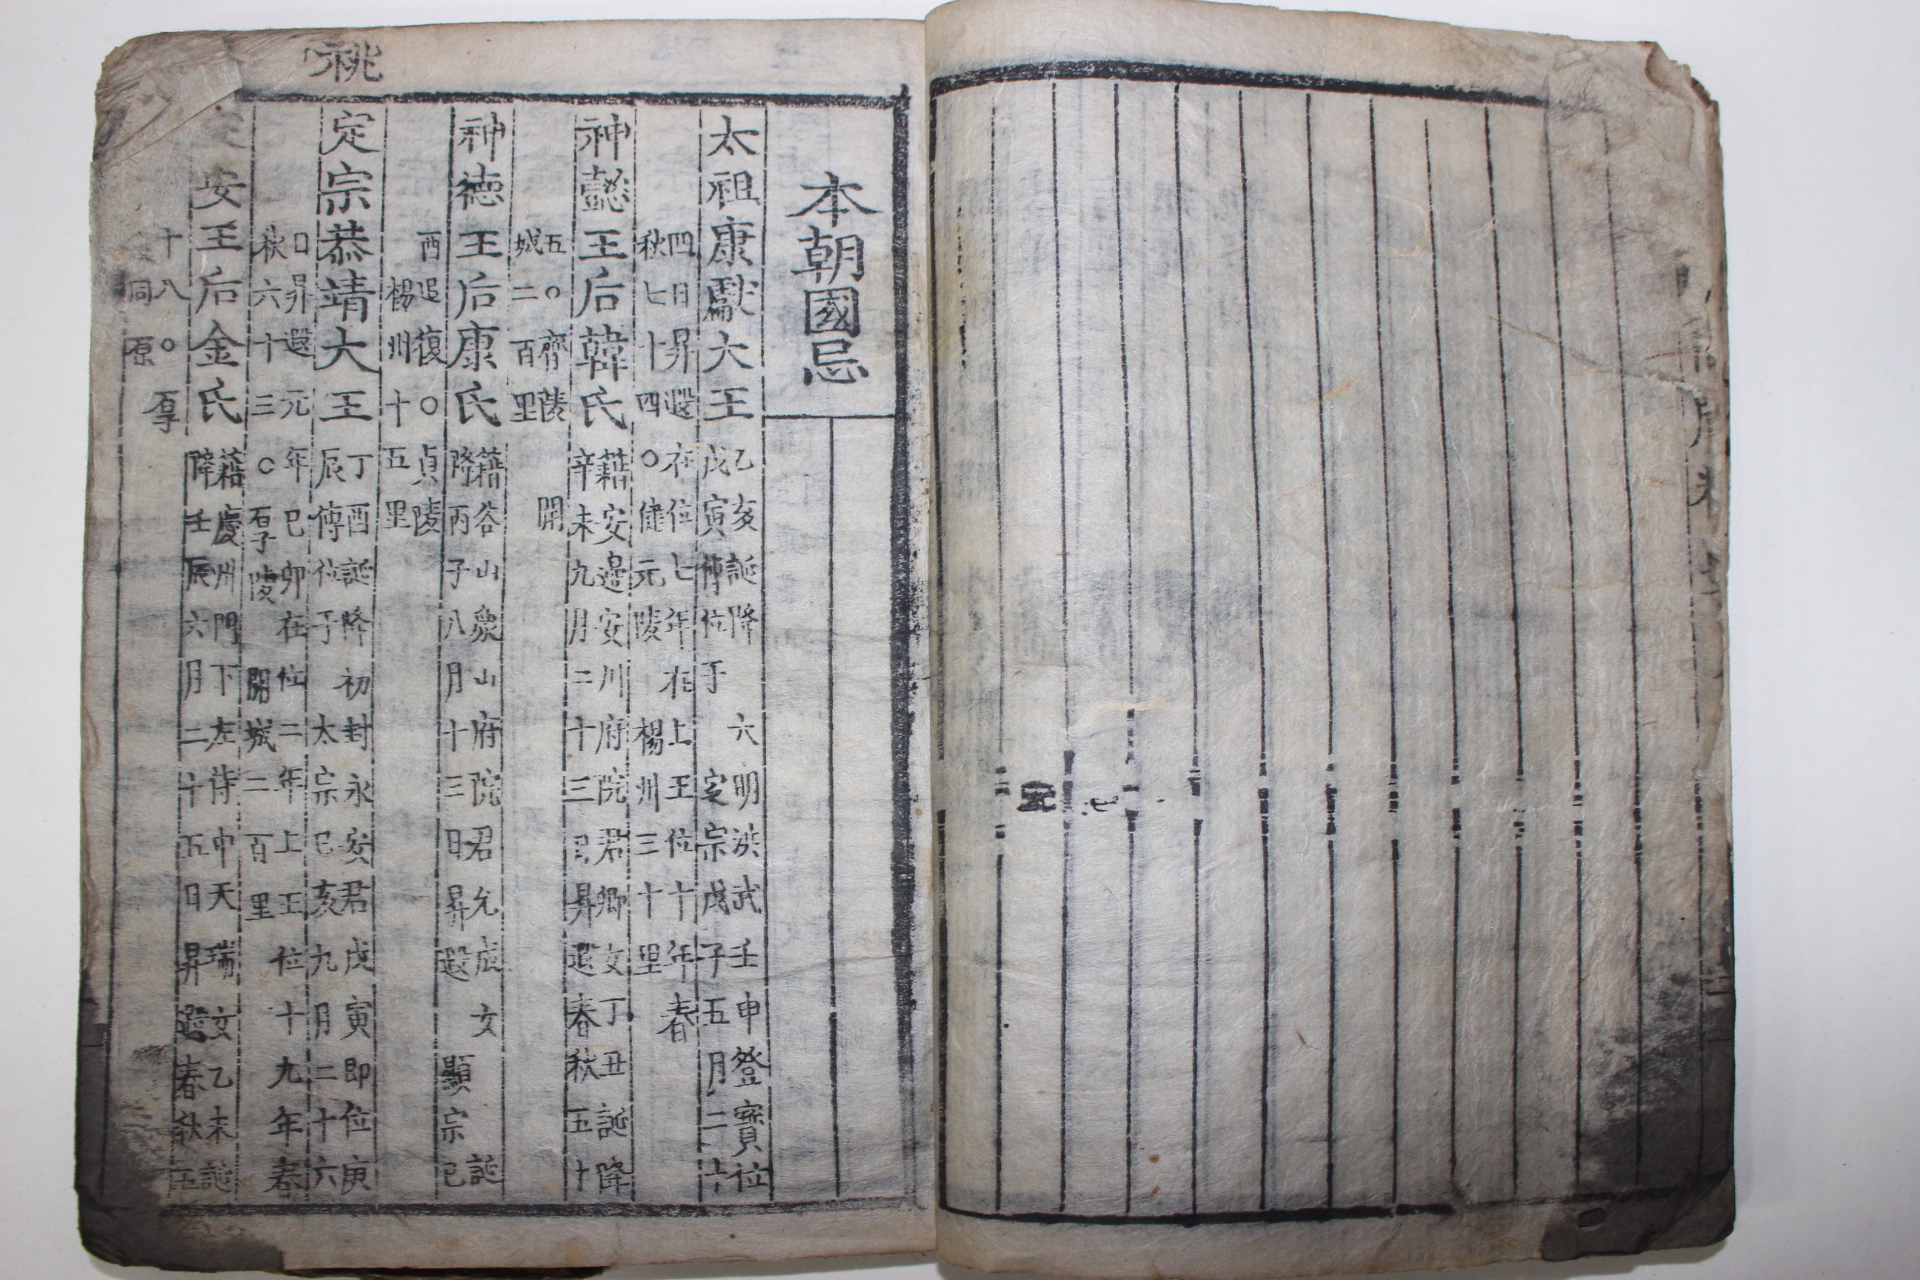 本朝國忌
太祖康獻大王
乙亥誕降 六 明洪武壬申登寶位
戊寅傳位于 定宗戊子五月二十
四日昇遐在位七年在上王位十年春
秋七十四○健元陵 楊州三十里
神懿王后韓氏
籍安邊安川府院君卿女丁丑誕降
辛未九月二十三日昇遐春秋五十
五○齊陵 開
城二百里
神德王后康氏
籍谷山象山府院君允成女 誕
降丙子八月十三日昇遐 顯宗己
酉追復○貞陵
楊州十五里
祧
定宗恭靖大王
丁酉誕降初封永安君戊寅即位庚
辰傳位于 太宗己亥九月二十六
日昇遐元年己卯在位二年上王位十九年春
秋六十三○厚陵 開城二百里
安王后金氏
籍慶州門下左侍中天瑞女乙未誕
降壬辰六月二十五日昇遐春秋五
十八○厚
同原